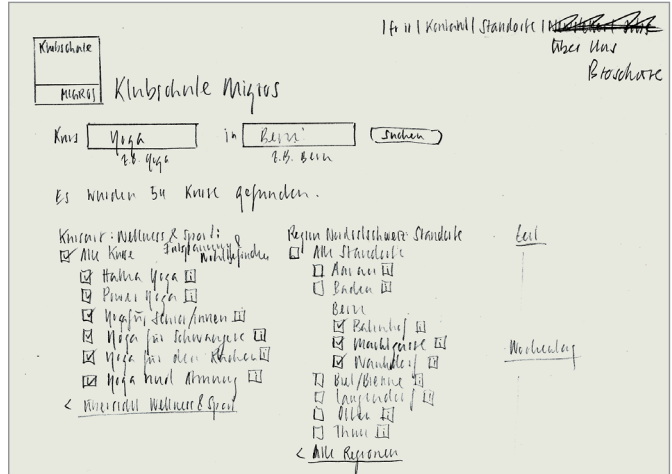 | fr it | Kontakt | Standorte |
Über uns
Broschüre
Klubschule
MIGROS
Klubschule Migros
Kurs Yoga in Bern suchen
z.B. Yoga z.B. Bern
Es wurden 54 Kurse gefunden.
Kursart: Wellness & Sport:
Entspannung & Wohlbefinden
Alle Kurse
Hatha Yoga i
Power Yoga i
Yoga für Senior/innen i
Yoga für Schwangere i
Yoga für den Rücken i
Yoga und Atmung i
< Wellness & Sport
Region Nordwestschweiz: Standorte
Alle Standorte
Aarau i
Baden i
Bern
Bahnhof i
Marktgasse i
Wankdorf i
Biel/Bienne i
Langendorf i
Olten i
Thun i
< Alle Regionen
Zeit
Wochentag